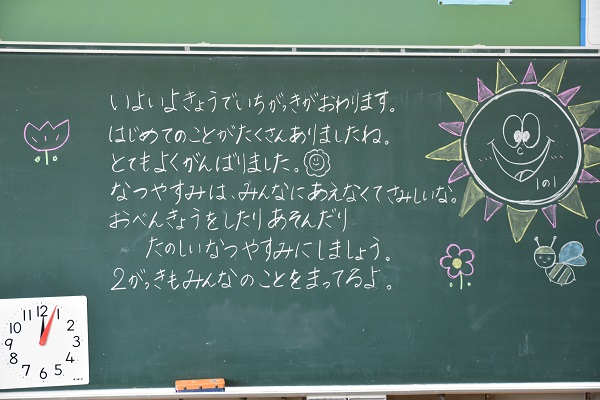 いよいよきょうでいちがっきがおわります。
はじめてのことがたくさんありましたね。
とてもよくがんばりました。
なつやすみは、みんなにあえなくてさみしいな。
おべんきょうをしたりあそんだり
たのしいなつやすみにしましょう。
2がっきもみんなのことをまってるよ。
1の1
12
1
2
3
4
5
6
7
8
9
10
11